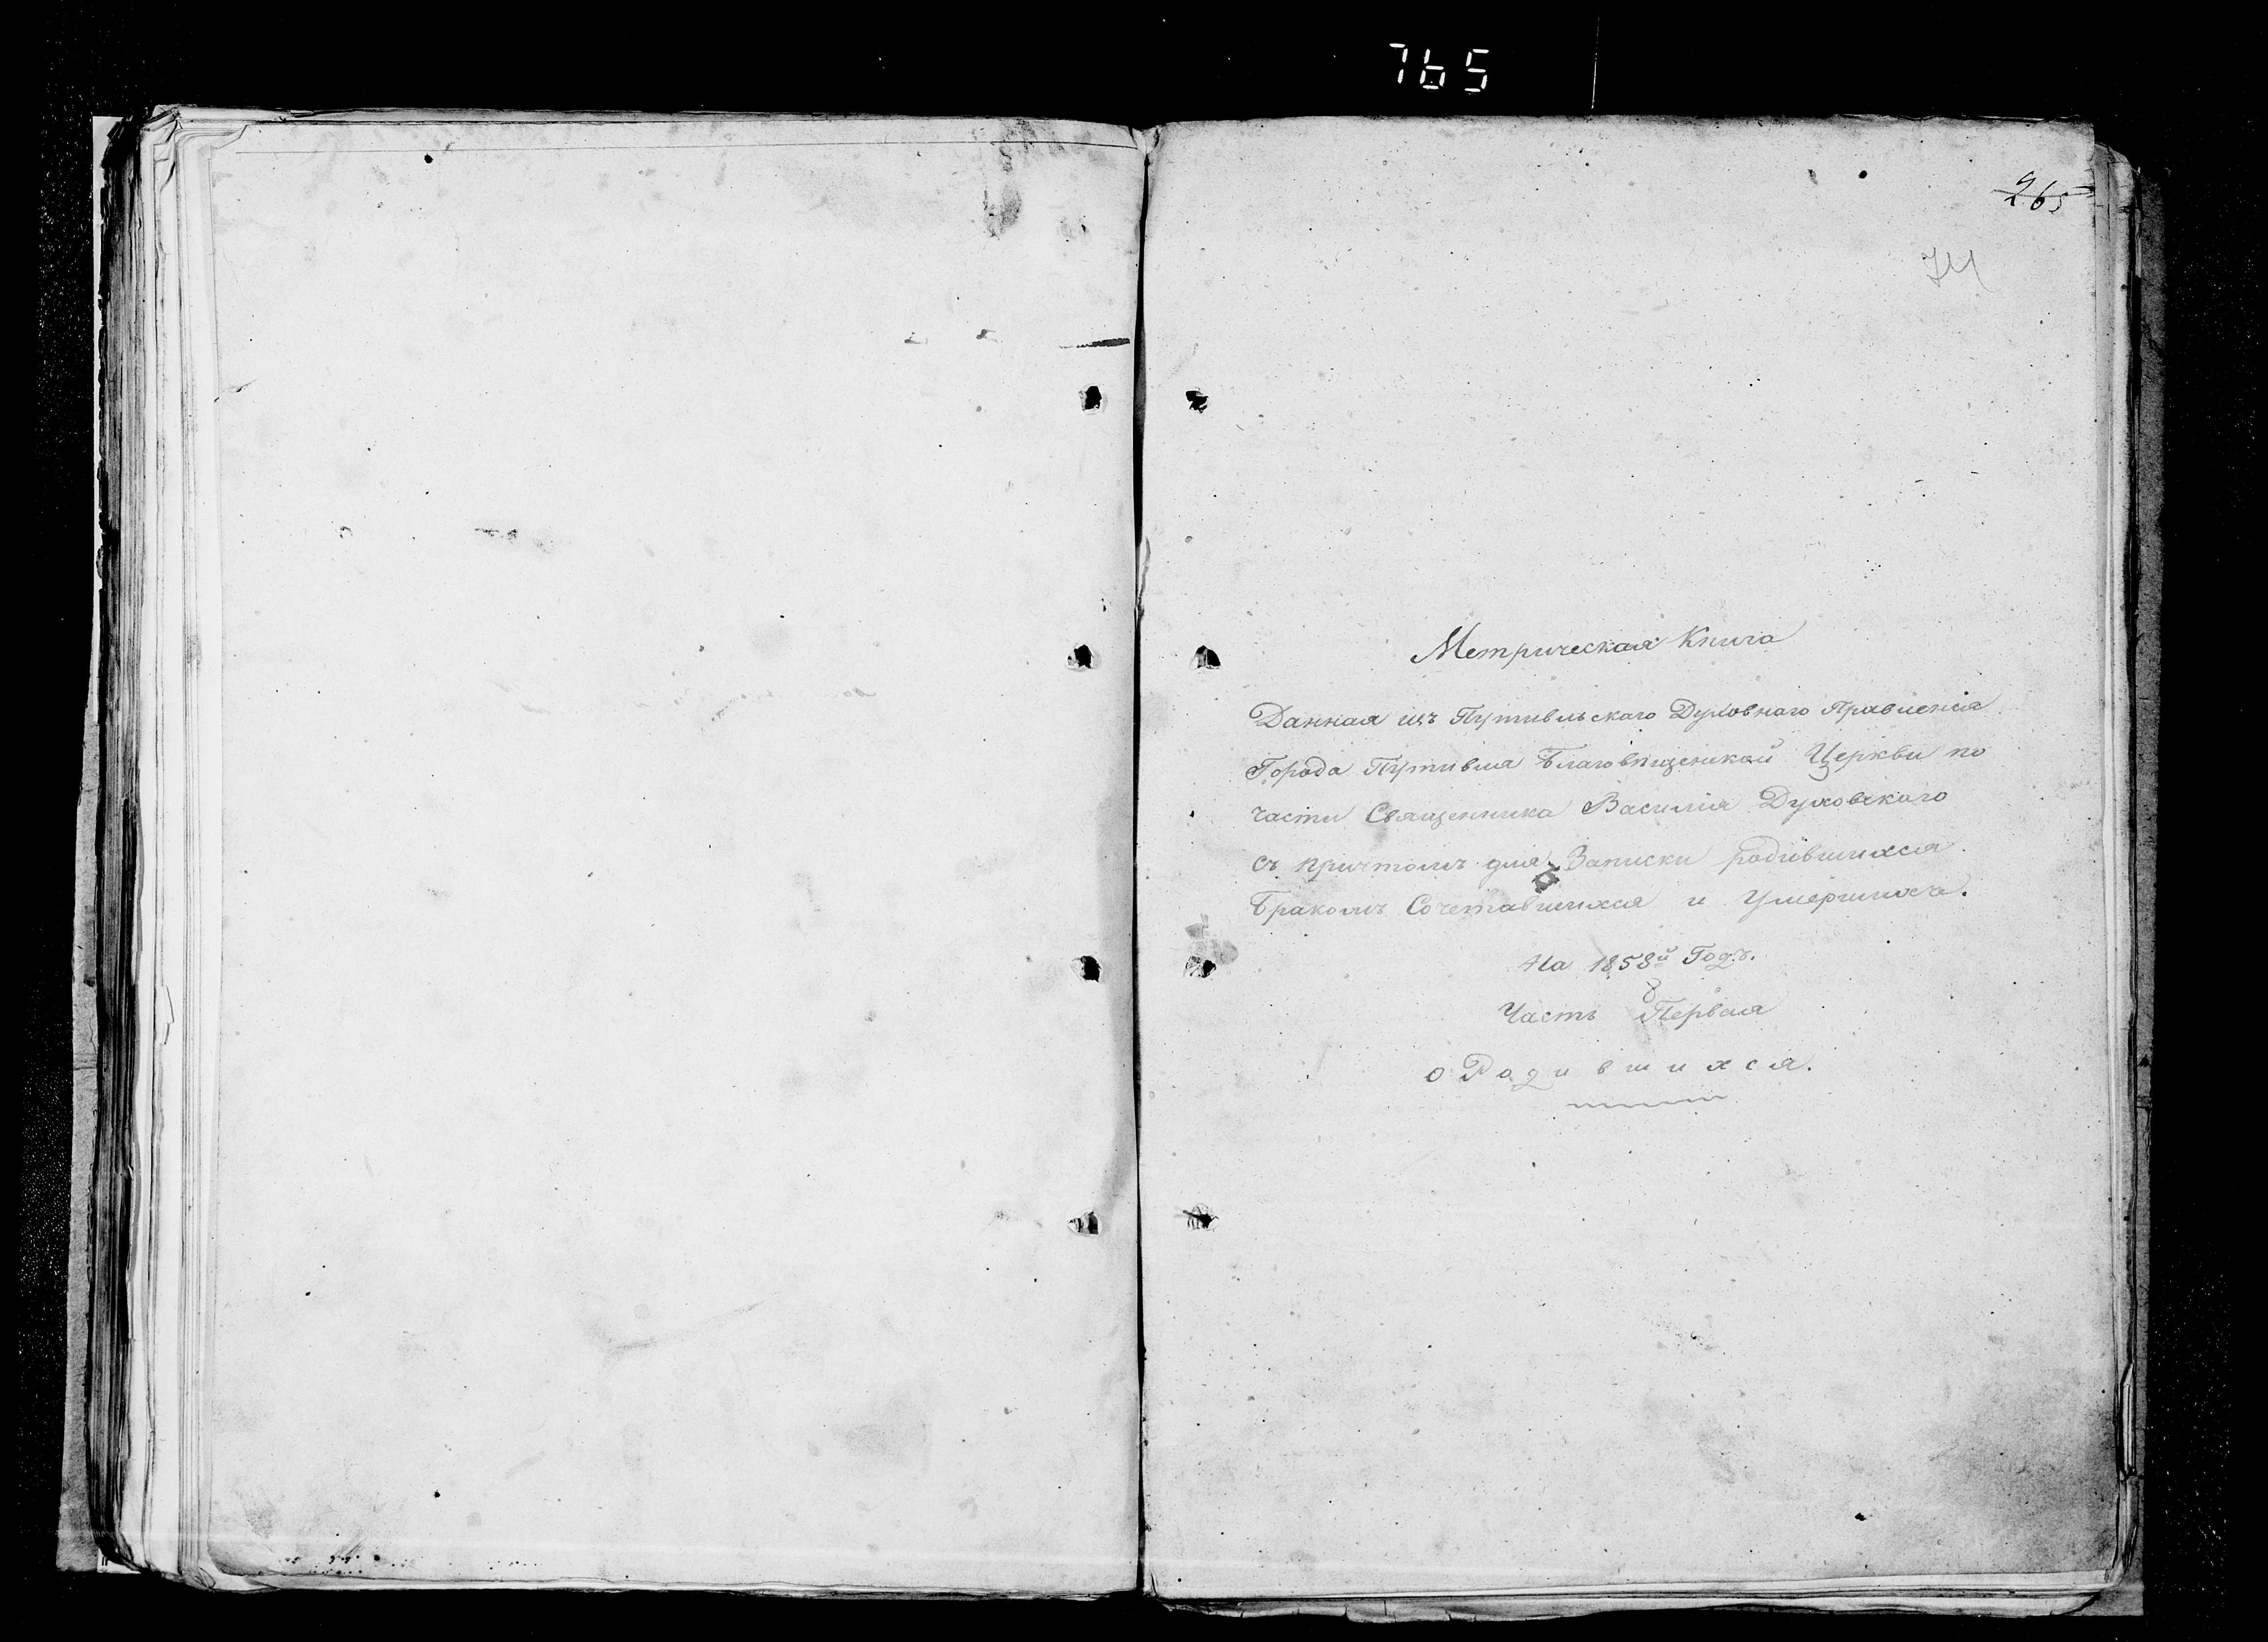 765
265
74
Метрическая Книга
Данная изъ Путивльскаго Духовнаго Правленія
Города Путивля Благовѣщенской Церкви по
части Священника Василія Духовскаго
съ причтомъ для Записки родившихся
Бракомъ Сочетавшихся и Умершихъ.
На 1858й Годъ.
8
Часть Первая
о Родившихся.